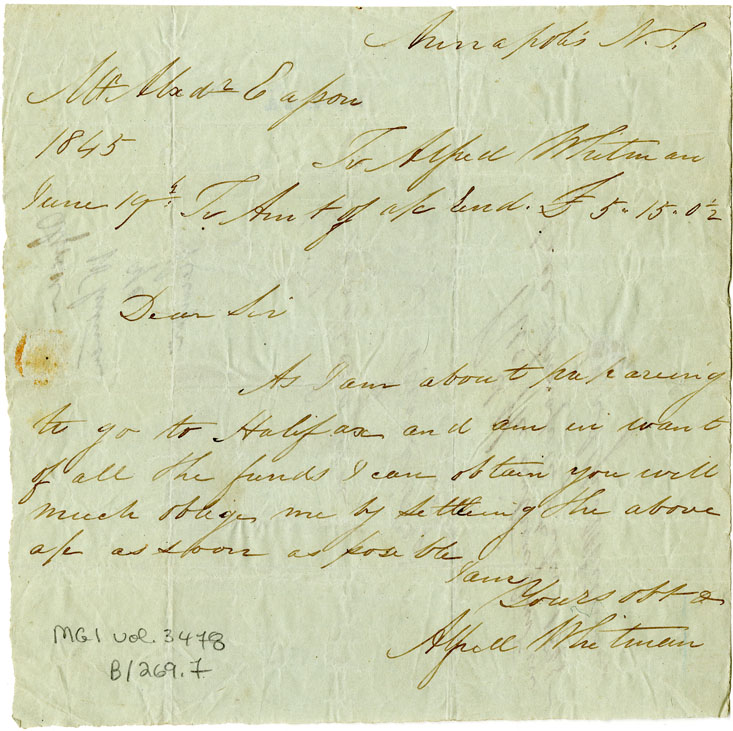 Annapolis N.S.
Mr Alexdr Eason
1845 To Alfred Whitman
June 19th To Amt of a/c End. £ 5„ 15„ 0½
Dear Sir
As I am about prepareing
to go to Halifax and am in want
of all the funds I can obtain you will
much oblige me by settleing the above
a/c as soon as posible
I am
Yours obt &
Alfred Whitman
MG1 vol. 3478
B/269.7